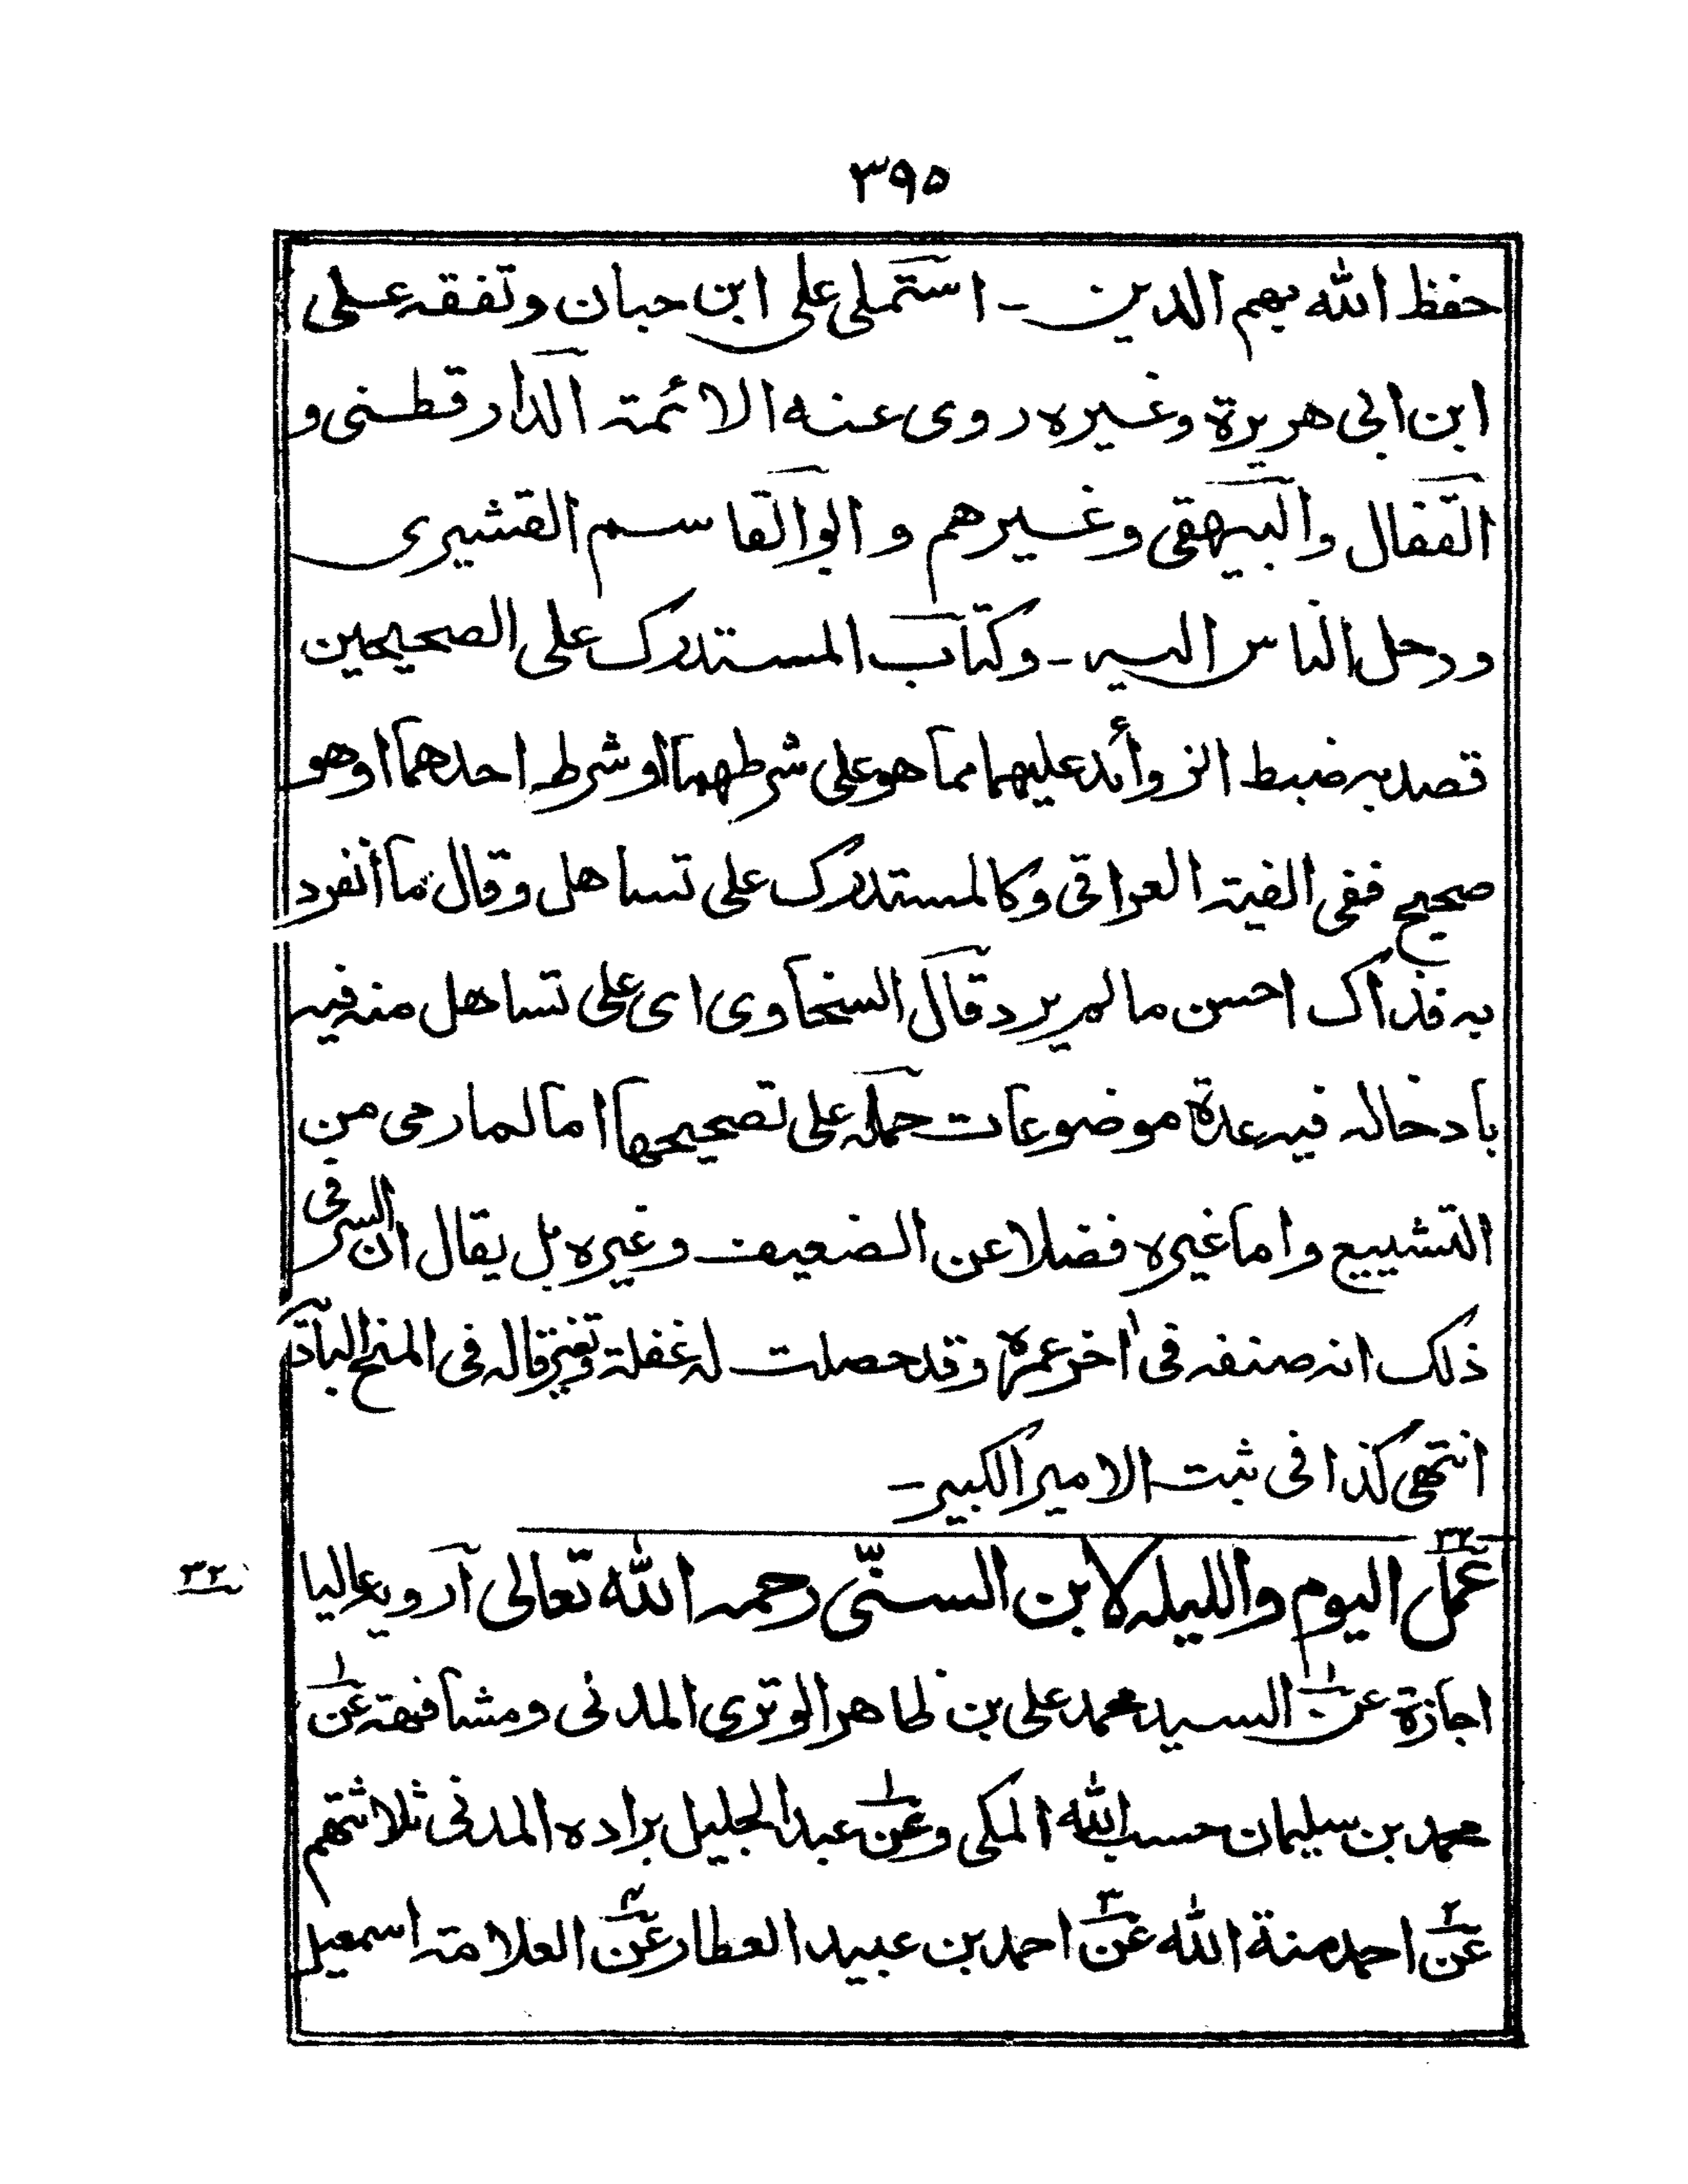 ٣٩٥
حفظ الله بهم الدين ـ استملى على ابن حبان وتفقه على
ابن ابى هريرة وغيره روى عنه الائمة الدارقطنى و
القفال والبيهقى وغيرهم و ابوالقاسم القشيرى
ورحل الناس اليه ـ وكتاب المستدرك على الصحيحين
قصد به ضبط الزوائد عليهما مما هو على شرطهما او شرط احدهما او هو
صحيح ففى الفية العراقى وكالمستدرك على تساهل وقال ما انفرد
به فذاك احسن مالم يرد قال السخاوى اى على تساهل منه فيه
بادخاله فيه عدة موضوعات حمله على تصحيحها اما لما رمى من
التشييع واما غيره فضلا عن الضعيف وغيره بل يقال ان السر فى
ذلك انه صنفه فى اخر عمره وقد حصلت له غفلة وتغير قاله فى المنح البادية
انتهى كذا فى ثبت الامير الكبير ـ
٣٢
عمل اليوم والليله لابن السنّى رحمه الله تعالى اَرويه عاليا
٣٢
اجازة عن السيد محمد على بن ظاهر الوترى المدنى ومشافهة عن
محمد بن سليمان حسب الله المكى وعن عبد الجليل براده المدنى ثلاثتهم
عن احمد منة الله عن احمد بن عبيد العطار عن العلامة اسمعيل